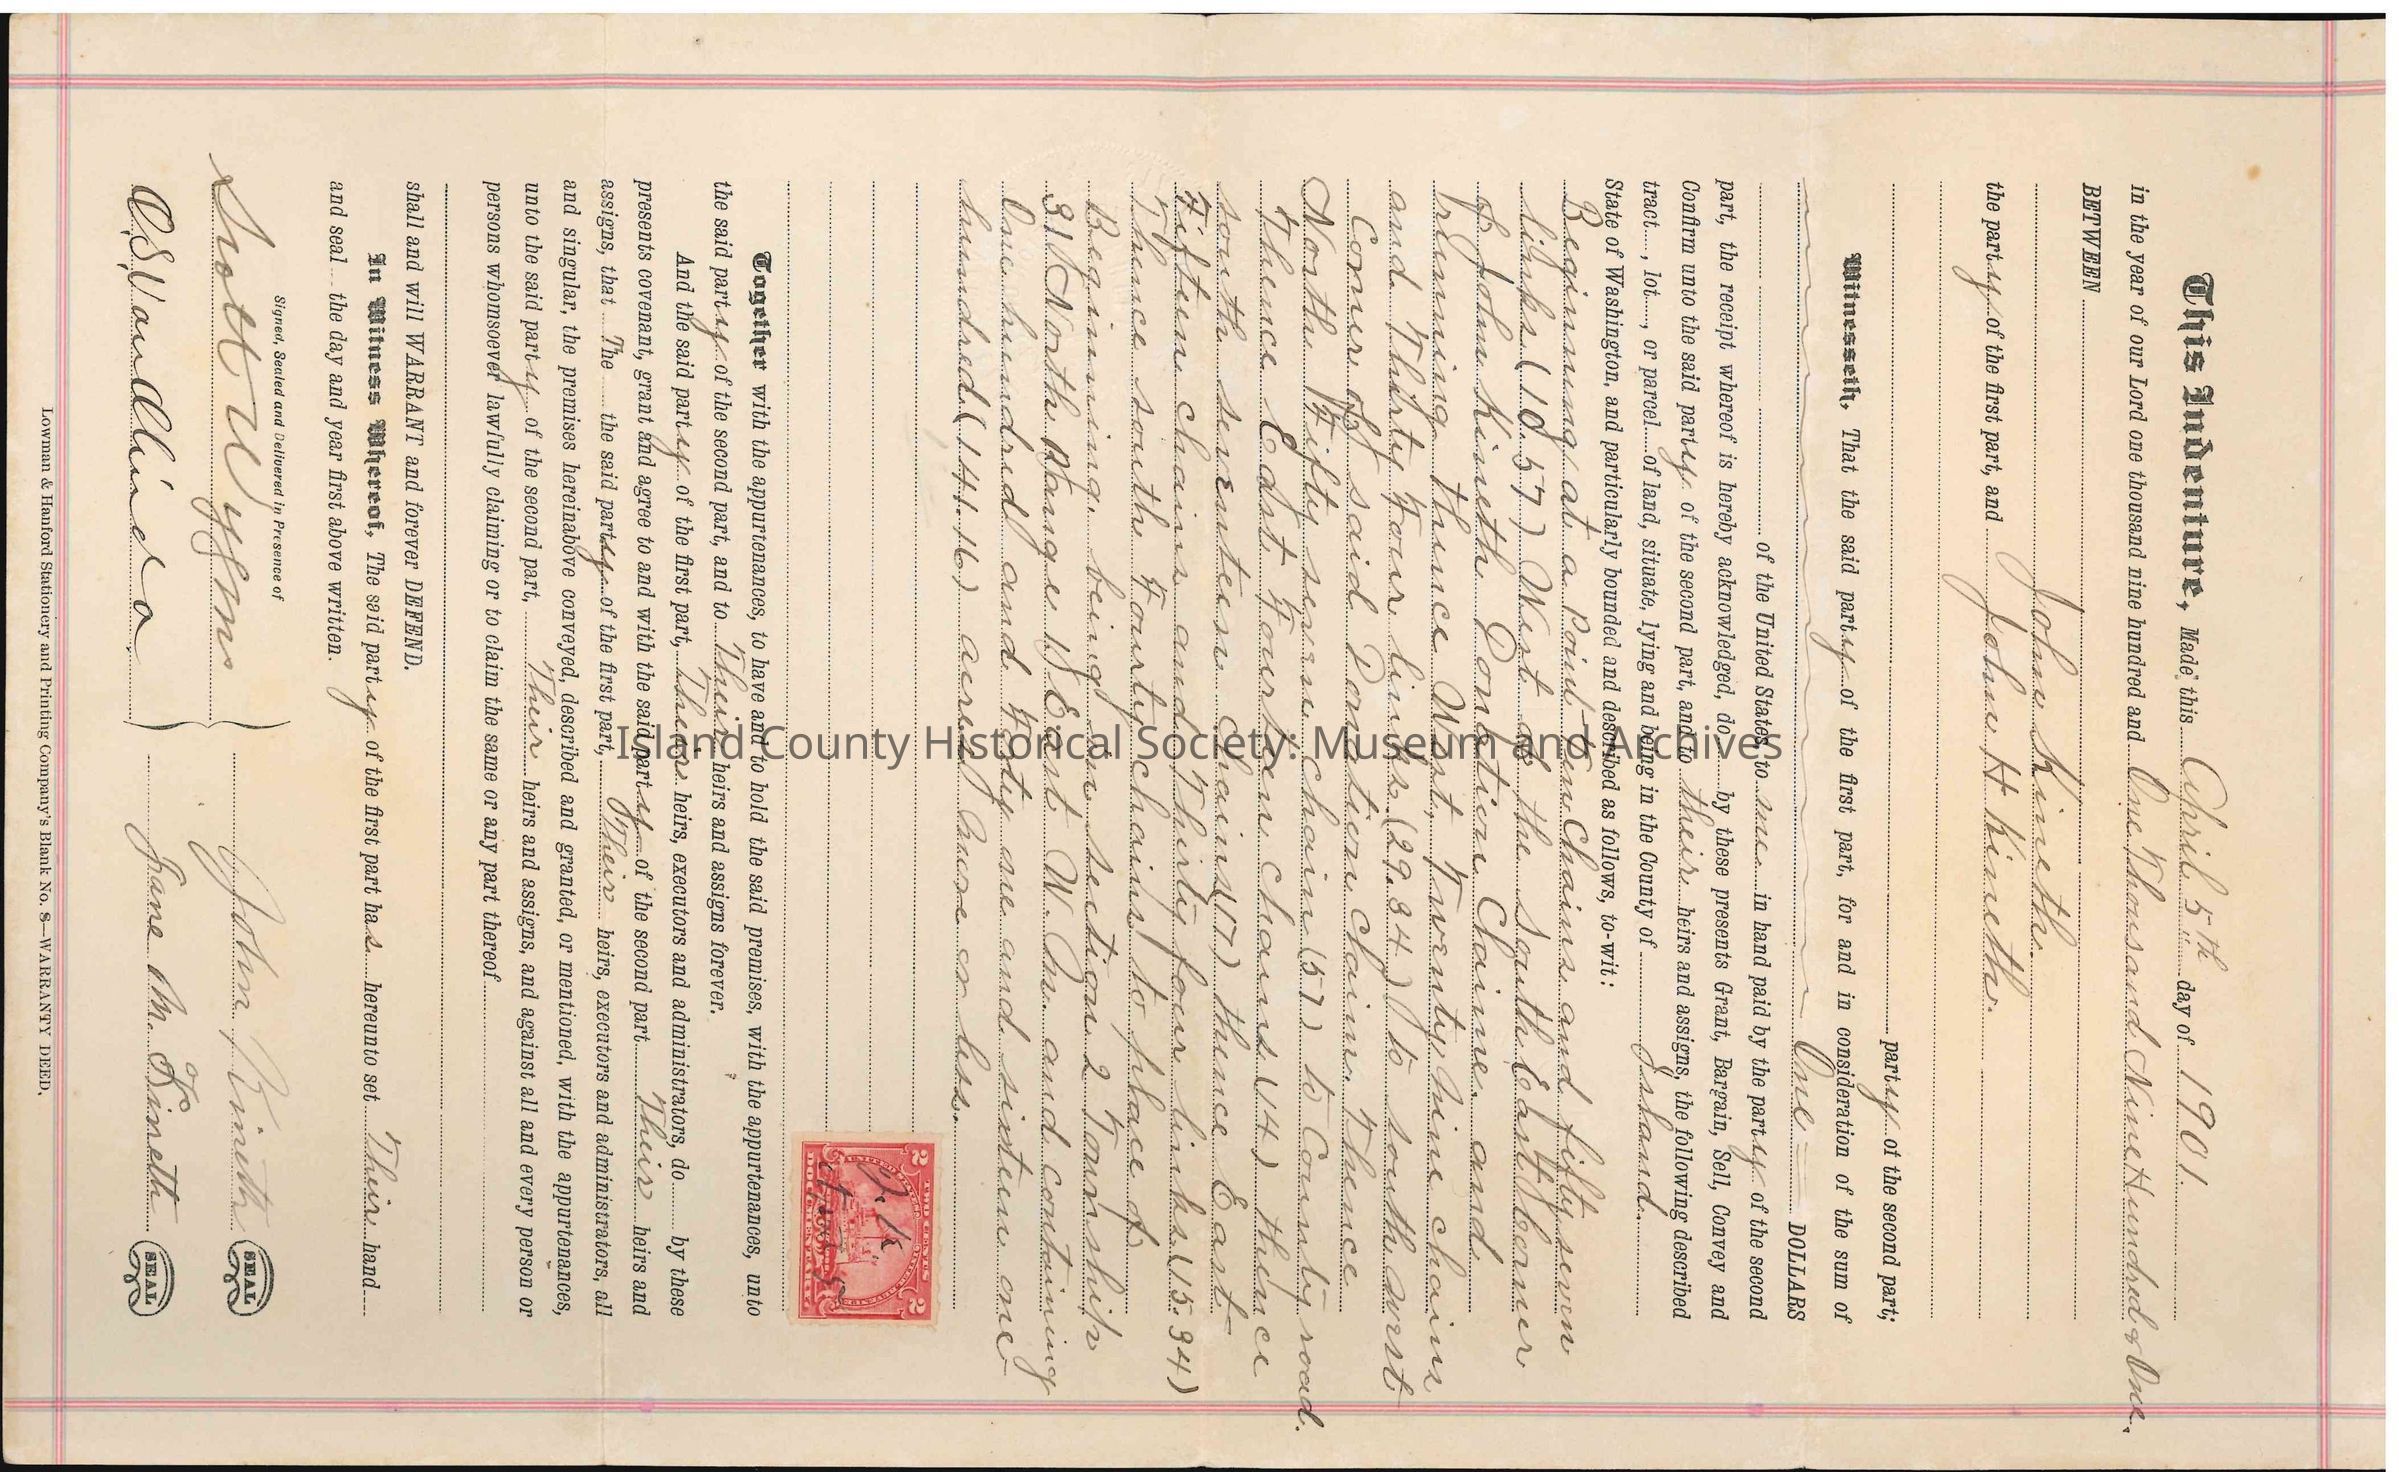 This Indenture, Made this April 5th day of 1901.
in the year of our Lord one thousand nine hundred and One Thousand Nine Hundred & One.
BETWEEN
John Kineth.
the party of the first part, and John H Kineth.
party of the second part;
Witnesseth, That the said party of the first part, for and in consideration of the sum of
One DOLLARS
of the United States, to me in hand paid by the party of the second
part, the receipt whereof is hereby acknowledged, do by these presents Grant, Bargain, Sell, Convey and
Confirm unto the said party of the second part, and to their heirs and assigns, the following described
tract, lot, or parcel of land, situate, lying and being in the County of Island.
State of Washington, and particularly bounded and described as follows, to-wit:
Beginning at a Point Ten Chains and fifty seven
links (10.57) West of the South East Corner
of John Kineth Donation Claime. and
running thence West, Twenty Nine chains
and Thirty Four links (29.34) To south west
Corner of said Donation Claim. Thence
North Fifty seven chain (57) to County road.
Thence East Fourteen chains (14) thence
south seventeen chains (17) thence East
Fifteen chains and Thirty four links (15.34)
Thence south Fourty chains to place of
Beginning. being in section 2 Township
31 North Range 1 East W. M. and containing
One hundred and Foty one and sixteen one
hundred (141.16) acres more or less.
Together with the appurtenances, to have and to hold the said premises, with the appurtenances, unto
the said party of the second part, and to Their heirs and assigns forever.
And the said party of the first part, Their heirs, executors and administrators, do by these
presents covenant, grant and agree to and with the said party of the second part Their heirs and
assigns, that The the said party of the first part, Their heirs, executors and administrators, all
and singular, the premises hereinabove conveyed, described and granted, or mentioned, with the appurtenances,
unto the said party of the second part, Their heirs and assigns, and against all and every person or
persons whomsoever lawfully claiming or to claim the same or any part thereof
shall and will WARRANT and forever DEFEND.
In Witness Whereof, The said party of the first part has hereunto set Their hand
and seal the day and year first above written.
Signed, Sealed and Delivered in Presence of
Scott Wyems John Kineth SEAL
Jane M. Kineth SEAL
Lowman & Hanford Stationery and Printing Company's Blank No. 8—WARRANTY DEED.
2 2
TWO CENTS
J. K.
Island County Historical Society: Museum and Archives